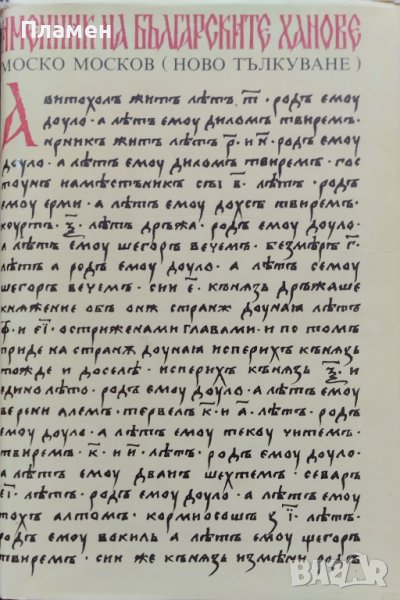 Пламен
ИМЕННИК НА БЪЛГАРСКИТЕ ХАНОВЕ
МОСКО МОСКОВ ( НОВО ТЪЛКУВАНЕ )
Авитохолъ житъ лѣт҃ъ · т҃ · родъ емоу
доуло · а лѣт҃ъ емоу диломъ твиремъ ·
ирникъ житъ лѣт҃ъ · р҃ · и · и҃ · родъ емоу
доуло · а лѣт҃ъ емоу диломъ твиремъ · гос
тоунъ намѣстьникъ сьі · в҃ · лѣт҃ъ · родъ
емоу ерми · а лѣт҃ъ емоу дохсъ твиремъ ·
коуртъ · ѯ҃ · лѣт҃ъ дръжа · родъ емоу доуло ·
а лѣт҃ъ емоу шегоръ вечемъ · безмѣръ · г҃ ·
лѣт҃ъ а родъ емоу доуло · а лѣт҃ъ семоу
шегоръ вечемъ · сии · е҃ · кънязь дръжаше
княжение обь онѫ странѫ доуная лѣт҃ъ ·
ф҃ · и · е҃і · остриженами главами · и по томъ
приде на странѫ доуная исперихъ кънязь
тожде и доселѣ · исперихъ кънязь · ѯ҃ · и
едино лѣто · родъ емоу доуло · а лѣт҃ъ емоу
верени алемъ · тервелъ · к҃ · и · а҃ · лѣт҃ъ · родъ
емоу доуло · а лѣт҃ъ емоу текоу читемъ ·
твиремъ · к҃ · и · и҃ · лѣт҃ъ · родъ емоу доуло ·
а лѣт҃ъ емоу дванъ шехтемъ · севаръ
е҃і · лѣт҃ъ · родъ емоу доуло · а лѣт҃ъ емоу
тохъ алтомъ · кормисошъ · з҃і · лѣт҃ъ ·
родъ емоу вокиль · а лѣт҃ъ емоу шегоръ
твиремъ · сии же кънязь измѣни родъ
БАЗАР